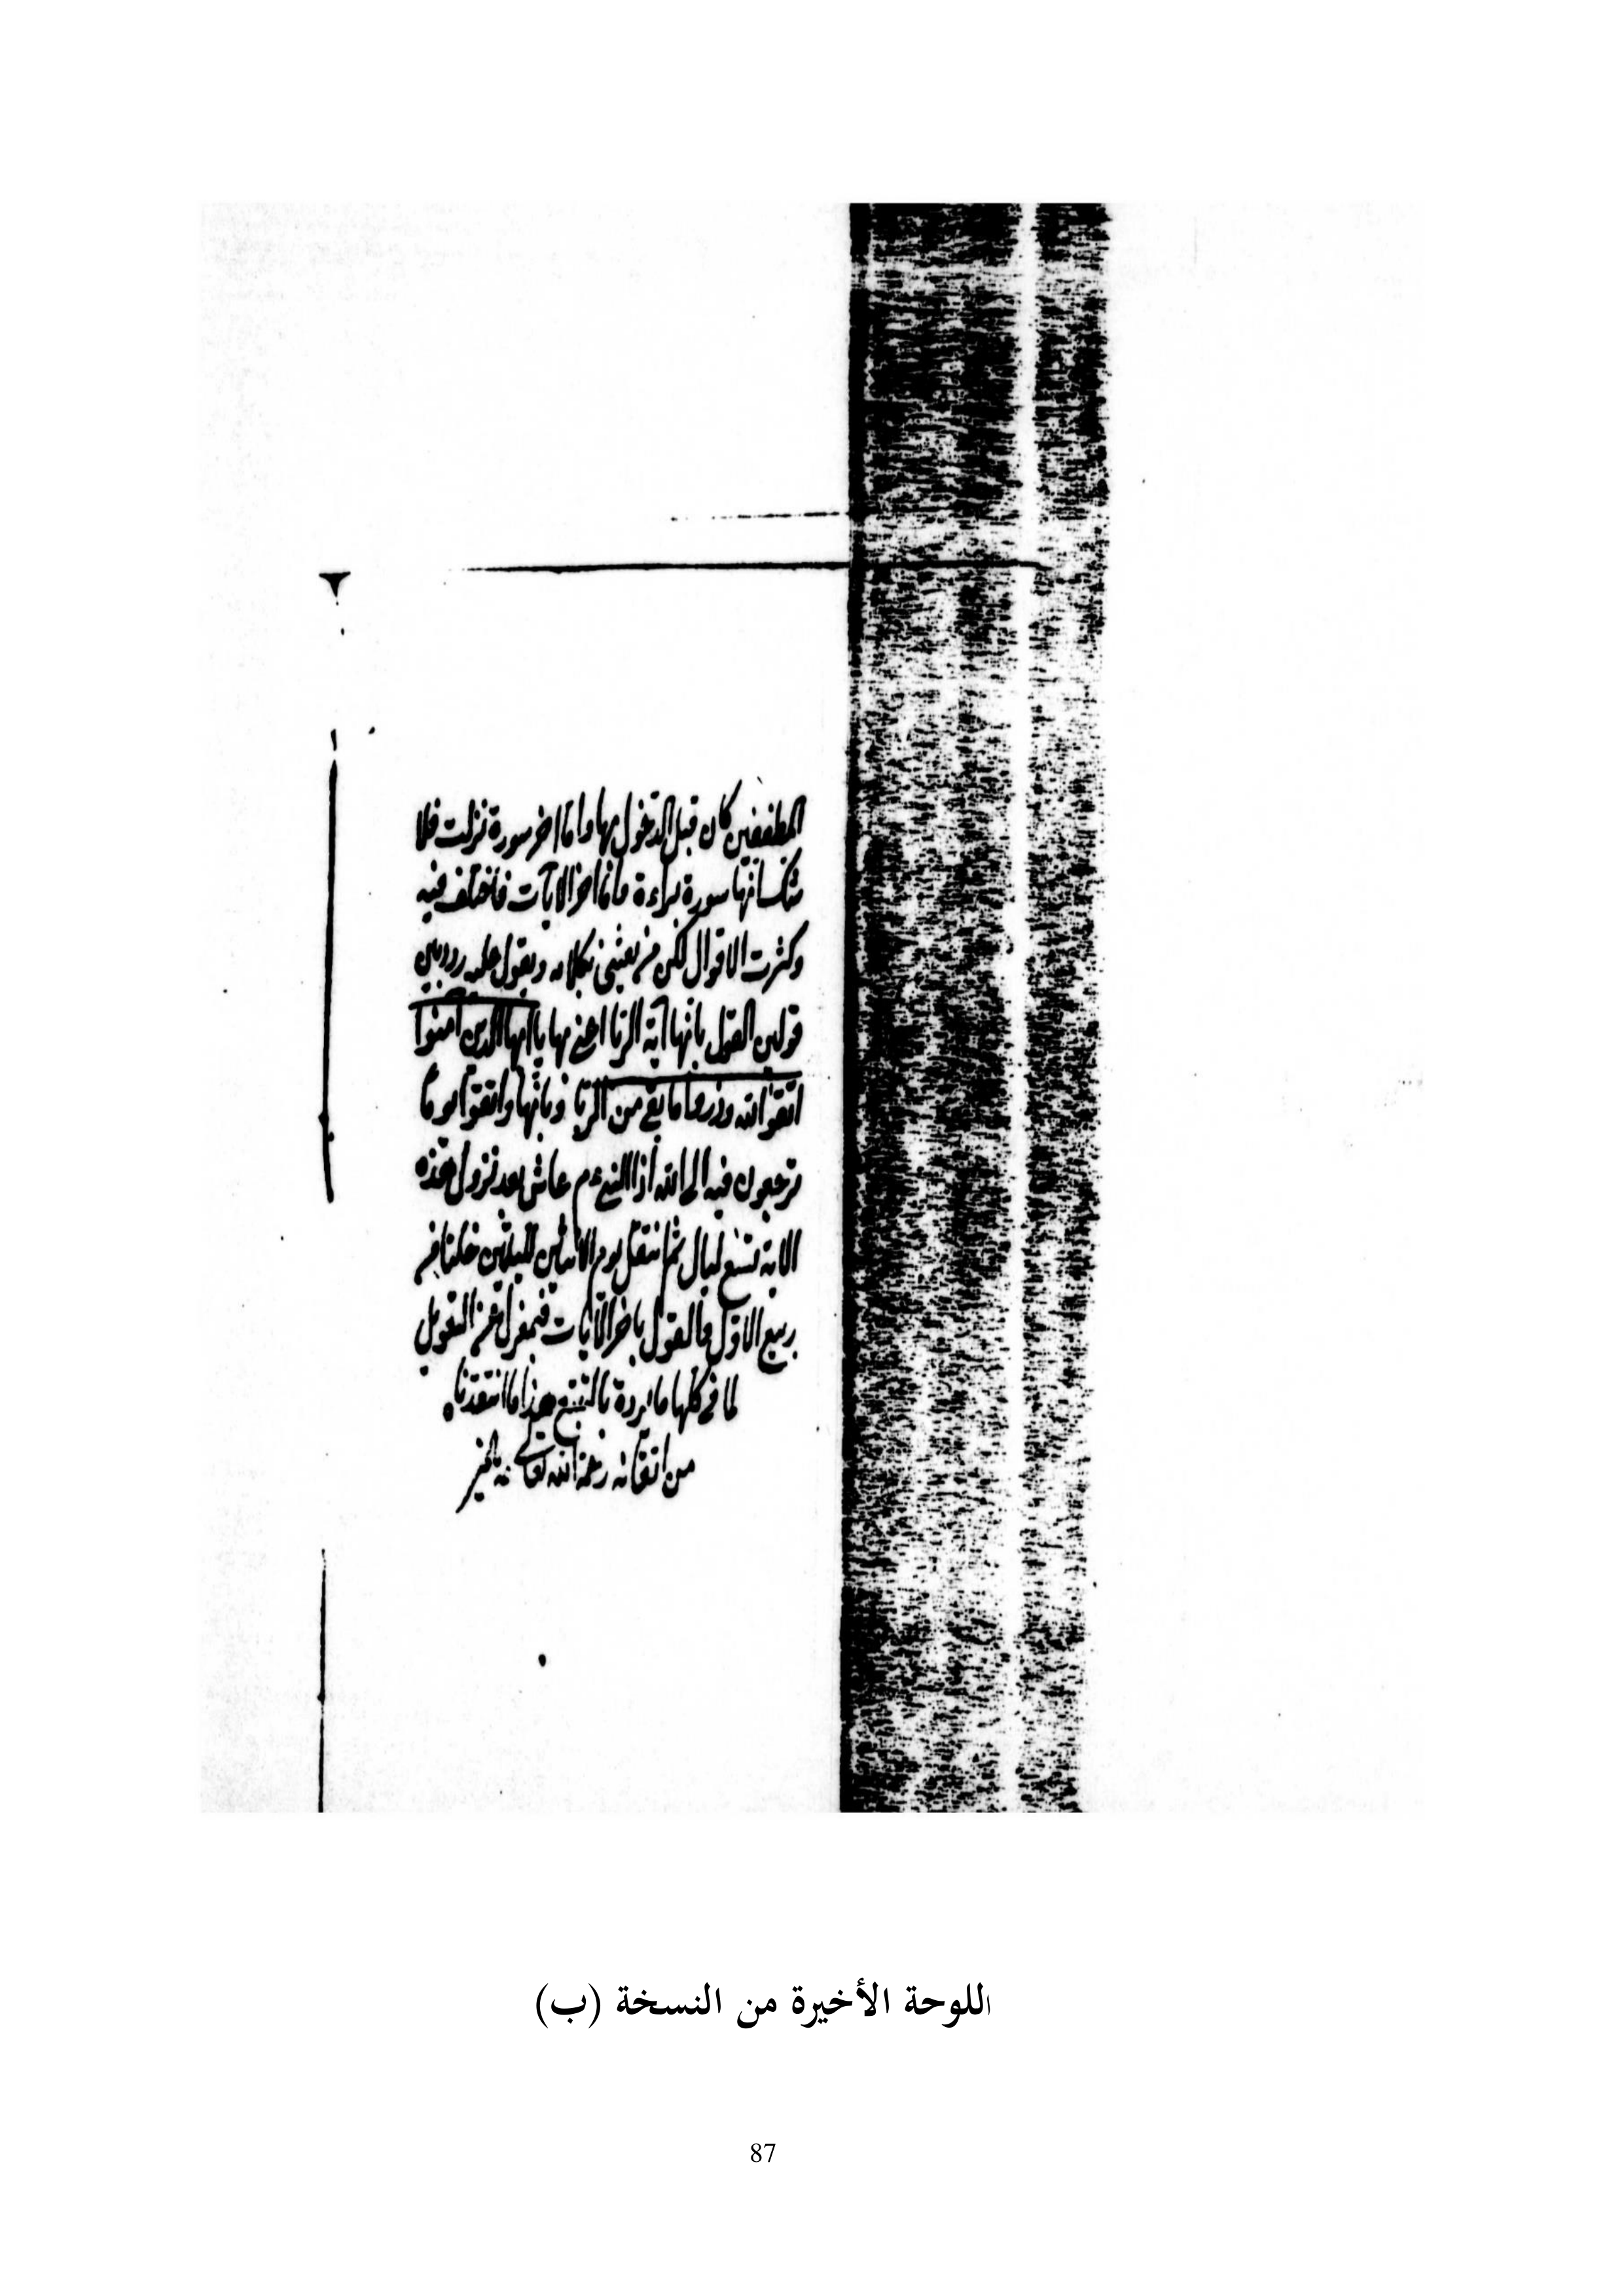 المطففين كان قبل الدخول بها واما اخر سورة نزلت فلا
شك انها سورة براءة واما اخر الايات فاختلف فيه
وكثرت الاقوال لكن من يعتني بكلامه ويعول عليه
قولين القول بانها آية الربا اعني بها يا ايها الذين آمنوا
اتقوا الله وذروا ما بقي من الربا وبانها واتقوا يوما
ترجعون فيه الى الله اذ النبي عم عاش بعد نزول هذه
الاية تسع ليال ثم انتقل يوم الاثنين لليلتين خلتا من
ربيع الاول والقول باخر الآيات فبمعزل عن التعويل
لما في كلها ما يرده بالتتبع هذا ما انتقدنا
من اتقانه رحمة الله تعالى
اللوحة الأخيرة من النسخة (ب)
87